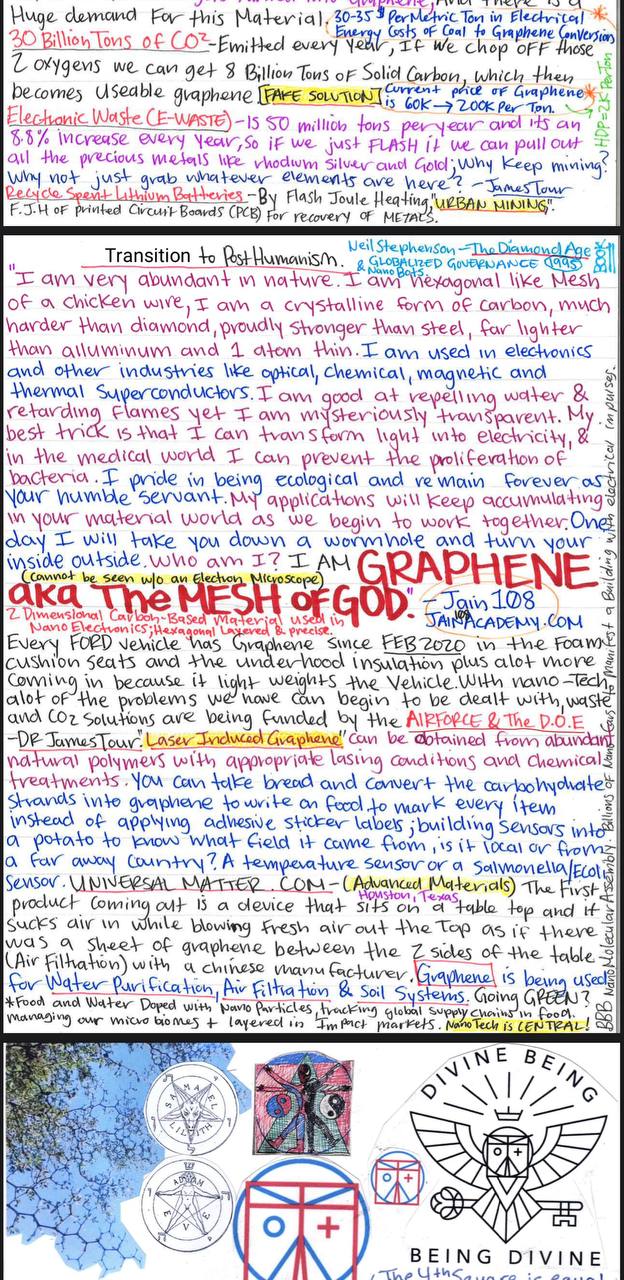 Huge demand For this Material. 30-35 $ Per Metric Ton in Electrical
Energy Costs of Coal to Graphene Conversion
30 Billion Tons of CO² - Emitted every year, If we chop off those
2 oxygens we can get 8 Billion Tons of Solid Carbon, which then
becomes Useable graphene. [FAKE SOLUTION] Current price of Graphene
is 60K → 200K Per Ton.
HDP = 2K Per Ton
Electronic Waste (E-WASTE) - Is 50 million tons per year and its an
8.8% increase every year, So if we just FLASH it we can pull out
all the precious metals like rhodium Silver and Gold; Why Keep mining?
Why not just grab whatever elements are here? - James Tour
Recycle Spent Lithium Batteries - By Flash Joule Heating, "URBAN MINING".
F.J.H of Printed Circuit Boards (PCB) For recovery of METALS.
Transition to PostHumanism.
Neil Stephenson - The Diamond Age
& GLOBALIZED GOVERNANCE (1995)
& Nano Bots.
BOOK
"I am very abundant in nature. I am hexagonal like Mesh
of a chicken wire, I am a crystalline form of carbon, much
harder than diamond, proudly stronger than steel, far lighter
than alluminum and 1 atom thin. I am used in electronics
and other industries like optical, chemical, magnetic and
thermal Superconductors. I am good at repelling water &
retarding flames yet I am mysteriously transparent. My
best trick is that I can transform light into electricity, &
in the medical world I can prevent the proliferation of
bacteria. I pride in being ecological and remain forever as
your humble servant. My applications will keep accumulating
in your material world as we begin to work together. One
day I will take you down a wormhole and turn your
inside outside. Who am I? I AM GRAPHENE
(Cannot be seen w/o an Electron Microscope)
aka The MESH of GOD." - Jain 108
JAIN108ACADEMY.COM
2 Dimensional Carbon-Based Material used in
Nano Electronics; Hexagonal Layered & precise.
Every FORD vehicle has Graphene since FEB 2020 in the Foam
cushion seats and the underhood insulation plus alot more
Coming in because it light weights the Vehicle. With nano-Tech
alot of the problems we have can begin to be dealt with, waste
and CO2 Solutions are being funded by the AIRFORCE & The D.O.E
- DR James Tour. "Laser Induced Graphene" can be obtained from abundant
natural polymers with appropriate lasing conditions and Chemical
treatments. You can take bread and convert the carbohydrate
Strands into graphene to write on food, to mark every item
instead of applying adhesive sticker labels; building Sensors into
a potato to know what field it came from, is it local or from
a far away country? A temperature sensor or a Salmonella/Ecoli
Sensor. UNIVERSAL MATTER.COM - (Advanced Materials) The First
Houston, Texas
product coming out is a device that sits on a table top and it
sucks air in while blowing fresh air out the Top as if there
was a sheet of graphene between the 2 sides of the table
(Air Filtration) with a chinese manufacturer. Graphene is being used
for Water Purification, Air Filtration & Soil Systems. Going GREEN?
*Food and Water Doped with Nano Particles, tracking global supply chains in food.
managing our micro biomes + layered in Impact markets. Nano Tech is CENTRAL!
BBB Nano Molecular Assembly. Billions of Nano bots to manifest a Building with electrical impulses.
SAMAEL
LILITH
ADAM
EVE
DIVINE BEING
BEING DIVINE
The 4th Square is equal